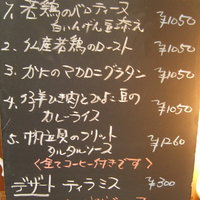 1. 若鶏のバロティーヌ ¥1050
白いんげん豆添え
2. 仏産若鶏のロースト ¥1050
3. かにのマカロニグラタン ¥1050
4. 仔羊ひき肉とひよこ豆の
カレーライス ¥1050
5. 帆立貝のフリット ¥1260
タルタルソース
〈全てコーヒー付きです〉
デザート ティラミス ¥300